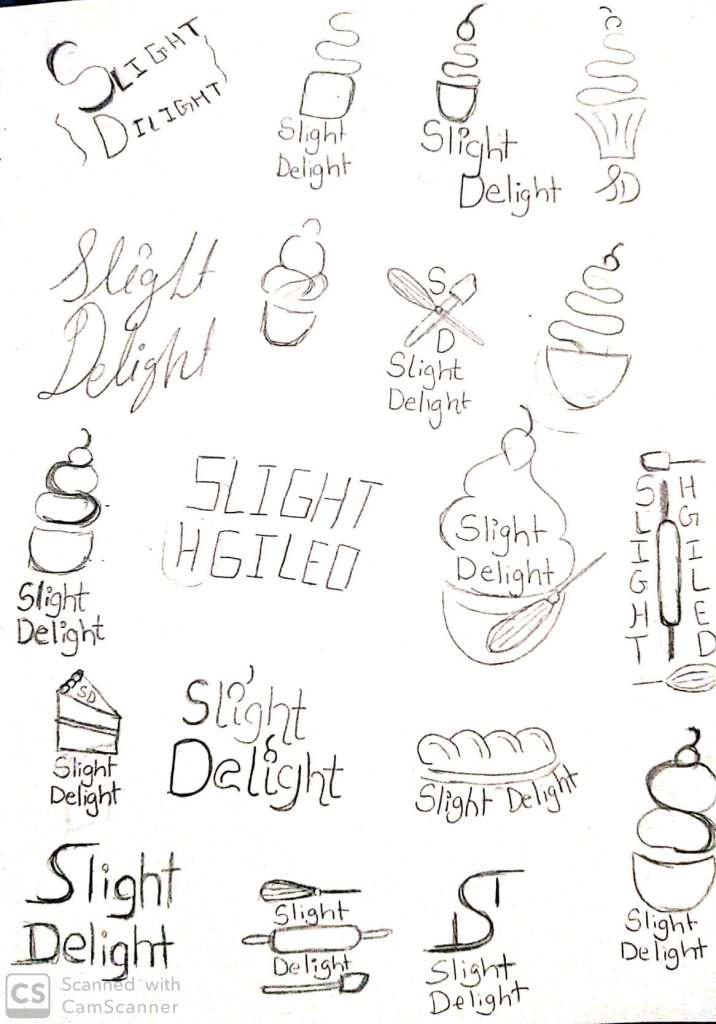 SLIGHT
DILIGHT
Slight
Delight
Slight
Delight
SD
Slight
Delight
S
D
Slight
Delight
Slight
Delight
SLIGHT
HGILED
Slight
Delight
SLIGHT
HGILED
SD
Slight
Delight
Slight
Delight
Slight Delight
Slight
Delight
Slight
Delight
Slight
Delight
S
Slight
Delight
CS
Scanned with
CamScanner